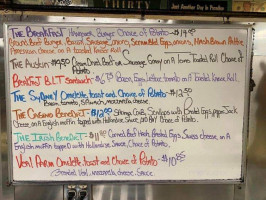 Just Another Day in Paradise
The Breakfast Hangover Burger Choice of Potato - $14.95
Ground Beef Burger, Bacon, Sausage, Scrambled Egg, Onions, Hash Brown Pattie
Cheese on a Toasted Roll
The Austin - $9.50 Bacon or Sausage, Gravy on a Toasted Roll, Choice of
Potato
Breakfast B.L.T. Sandwich - Bacon, Eggs, Lettuce, Tomato on a Toasted Roll.
The Sydney Omelette, toast and Choice of Potato - $13.50
Bacon, tomato, Spinach, mozzarella cheese
The Casino Benedict - $12.95 Steak, Corn, Scallions with Poached Eggs, Pepper Jack
Cheese on English muffin topped with Hollandaise Sauce, Choice of Potato.
The Irish Benedict - $11.95 Corned Beef Hash, Poached Eggs, Swiss cheese, on A
English muffin topped with Hollandaise Sauce, Choice of Potato.
Veal Parm Omelette, toast and Choice of Potato - $10.95
Breaded Veal, mozzarella cheese, Sauce